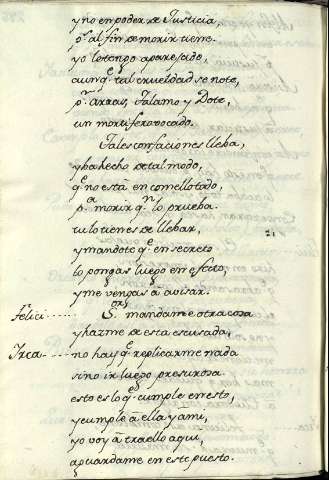 y no en poder de Justicia,
p.ª al fin de morir tiene.
yo lo tengo aparejado,
aunq.e tal crueldad se note,
p.r arras, Talamo y Dote,
un mortifero vocado.
Tales confaciones lleba,
y ba hecho de tal modo,
q.e no està en comello todo,
p.a morir q.n lo prueba.
tu lo tienes de llebar,
y mandote q.e en secreto
lo pongas luego en efecto,
y me vengas à avisar.
Felici..... S.ra mandame otra cosa
y hazme de esta escusada,
Irca..... no hay q.e replicarme nada
sino ir luego presurosa.
esto es lo q.e cumple en esto,
y cumple à ella y à mi,
yo voy à traello aqui,
aguardame en este puesto.